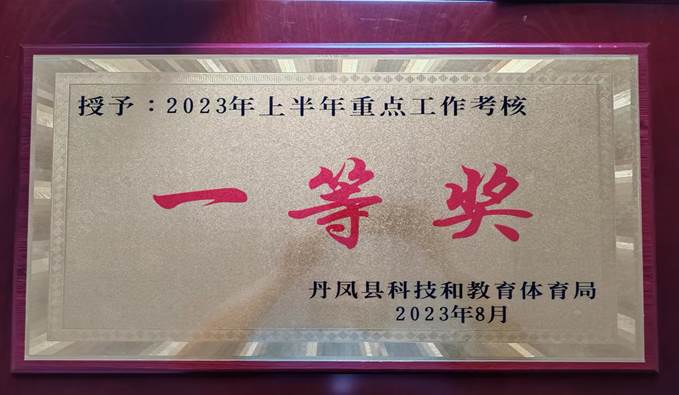 授予：2023年上半年重点工作考核
一等奖
丹凤县科技和教育体育局
2023年8月